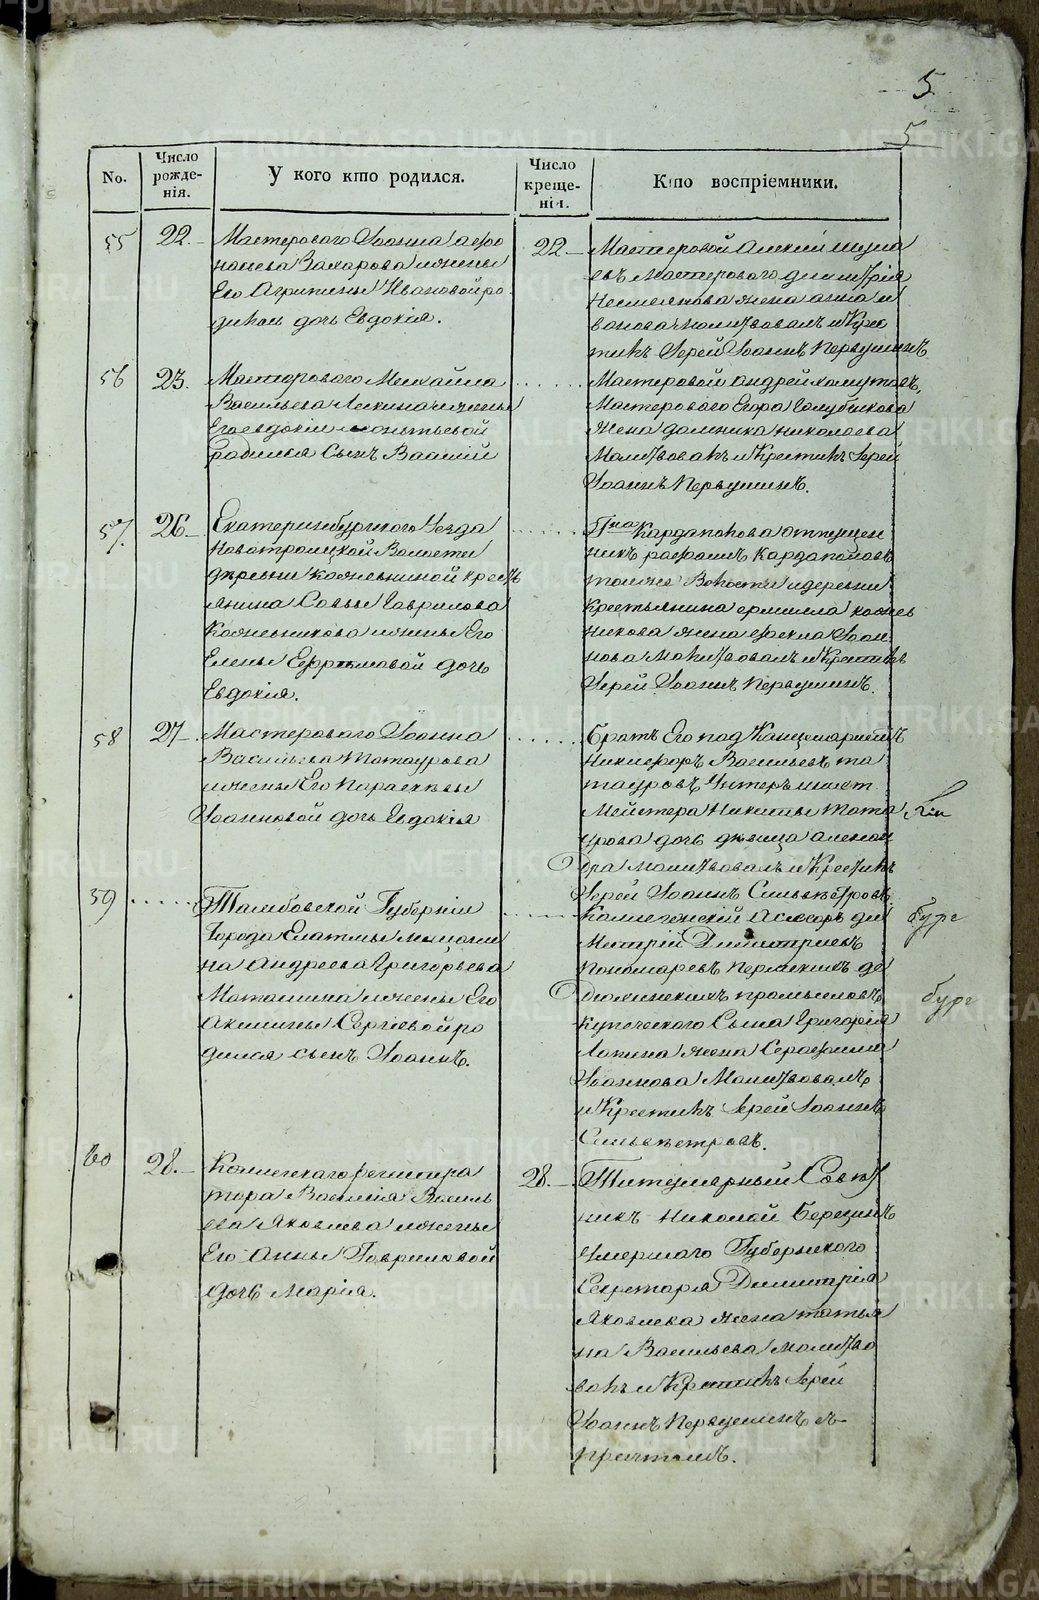 5
5
No.
Число рожденія.
У кого кто родился.
Число крещенія.
Кто воспріемники.
55
22.
Мастероваго Іоанна Афо
насьева Захарова и жены
Его Агрипины Ивановой ро
дилась дочь Евдокія.
22
Мастеровой Алексій
евъ Мастероваго Димитрія
жена Анна И
ванова молитвовалъ и Кре
стилъ Іерей Іоаннъ Первушинъ
56
23.
Мастероваго Михаила
Васильева и жены
Его Евдокіи
Родился Сынъ Василій
Мастеровой Андрей Хомутовъ,
Мастероваго Егора Голубчикова
Жена Домника Николаева
Молитвовалъ и Крестилъ Іерей
Іоаннъ Первушинъ.
57.
26
Екатеринбургскаго Уезда
Новотроицкой Волости
деревни Кожевниковой крест
янина Саввы Гаврилова
Кожевникова и жены Его
Елены Ефримовой дочь
Евдокія.
Гна Кардапольова отпущен
никъ Кардаполовъ
тойже Волости и деревни
Крестьянина Ермила кожев
никова жена Фекла Іоан
нова молитвовалъ и Крестилъ
Іерей Іоаннъ Первушинъ.
58
27
Мастероваго Іоанна
Васильева Татаурова
и жены Его Параскевы
Іоанновой дочь Евдокія
Братъ Его под Канцеляристъ
Никифоръ Васильевъ та
тауровъ, Унтеръ шихт
Мейстера Никиты Тата
урова дочь девица Алексан
дра молитвовалъ и Крестилъ
Іерей Іоаннъ Сильвестровъ
59
Тамбовской Губерніи
Города Елатмы Мещани
на Андреева Григорьева
Маташина и жены Его
Акилины Сергіевой ро
дился сынъ Іоаннъ.
Коллегскій Асесоръ Ди
митрій Димитриевъ
Пономаревъ Пермскихъ де
дюхинскихъ промысловъ
купеческаго Сына Григорія
Лапина жена Серафима
Іоаннова Молитвовалъ
и Крестилъ Іерей Іоаннъ
Сильвестровъ.
бург
бург
60
28.
Коллегскаго регистра
тора Василія Василь
ева Яковлева и жены
Его Анны Гавриловой
дочь Марія.
28.
Титулярный Совет
никъ Николай Березинъ
Умершаго Губернскаго
Секретаря Димитрія
Яковлева жена татья
на Васильева молитво
валъ и Крестилъ Іерей
Іоаннъ Первушинъ съ
причтомъ.
METRIKI.GASO-URAL.RU